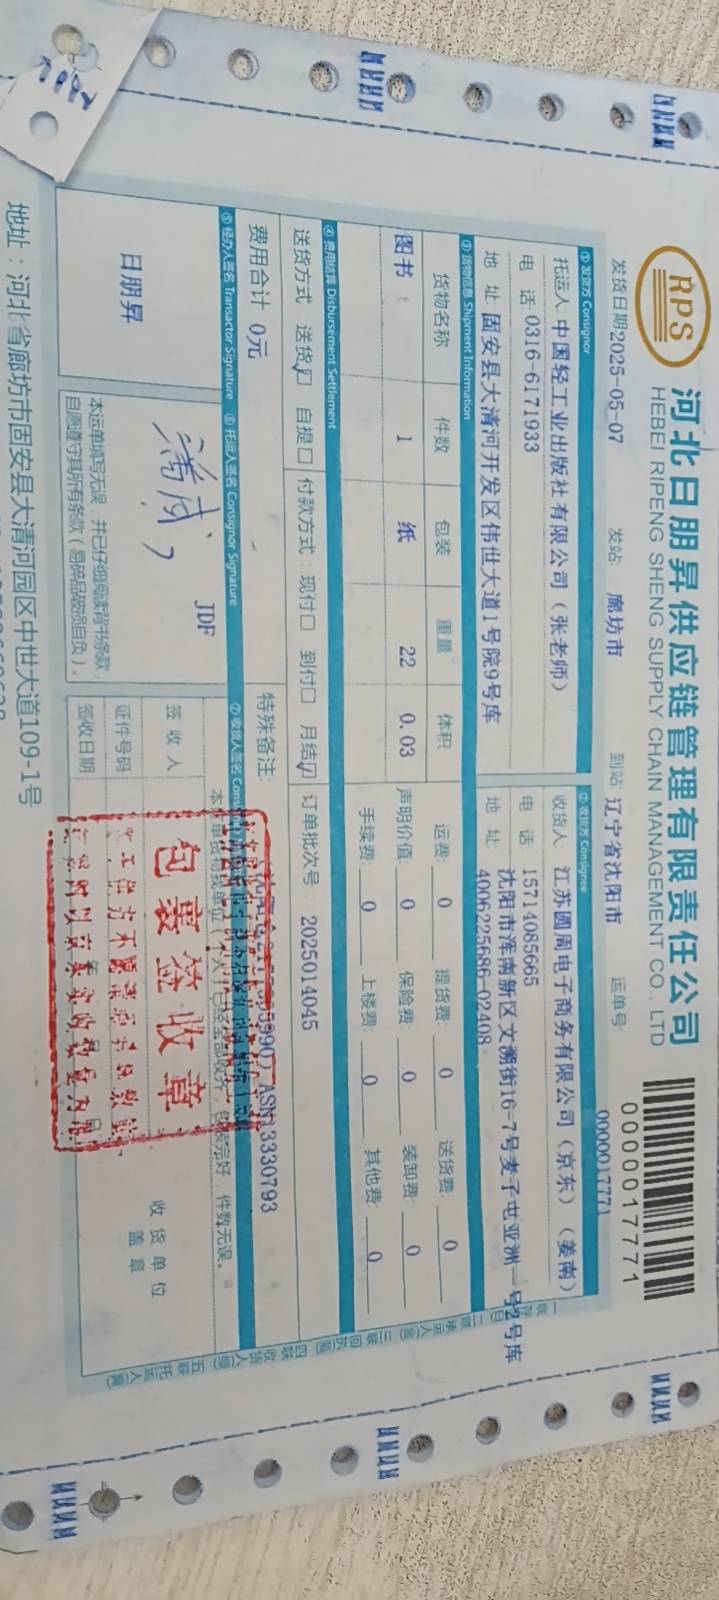 RPS
河北日朋昇供应链管理有限责任公司
HEBEI RIPENG SHENG SUPPLY CHAIN MANAGEMENT CO., LTD
0000017771
发货日期:2025-05-07 发站: 廊坊市 到站: 辽宁省沈阳市 运单号: 0000017771
① 发货方 Consignor
托运人: 中国轻工业出版社有限公司（张老师）
电 话: 0316-6171933
地 址: 固安县大清河开发区伟世大道1号院9号库
② 收货方 Consignee
收货人: 江苏圆周电子商务有限公司（京东）（姜南）
电 话: 15714085665
地 址: 沈阳市浑南新区文溯街16-7号麦子屯亚洲一号2号库
4006225686-02408
③ 货物信息 Shipment Information
货物名称 件数 包装 重量 体积
图书 1 纸 22 0.03
运费: 0 提货费: 0 送货费: 0
声明价值: 0 保险费: 0 装卸费: 0
手续费: 0 上楼费: 0 其他费: 0
④ 费用结算 Disbursement Settlement
送货方式: 送货☑ 自提☐ 付款方式: 现付☐ 到付☐ 月结☑ 订单批次号: 2025014045
费用合计 0元
特殊备注:
ASN13330793
⑤ 经办人签名 Transactor Signature
日朋昇
⑥ 托运人签名 Consignor Signature
JDF
本运单填写无误，并已仔细阅读背书条款，
自愿遵守其所有条款（易碎品破损自负）。
⑦ 收货人签名
包装完好，件数无误。
签收人
证件号码
签收日期
收货单位
盖章
包裹签收章
地址：河北省廊坊市固安县大清河园区中世大道109-1号